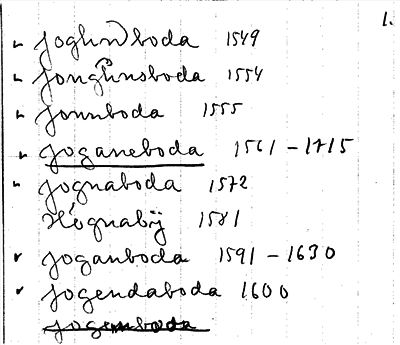 1.
Joghnboda 1549
Jonghnsboda 1554
Jonnboda 1555
Joganeboda 1561 – 1715
Jognaboda 1572
Högnabÿ 1581
Joganboda 1591 – 1630
Jogendaboda 1600